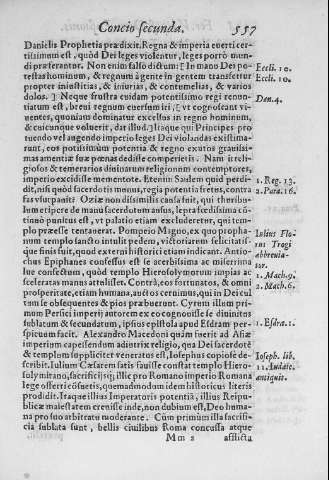 Concio secunda. 557
Danielis Prophetia prædixit. Regna & imperia euerti cer-
tissimum est, quòd Dei leges violentur, leges porrò mun-
di præferantur. Non enim falso dictum: [In mano Dei po-
testas hominum, & regnum à gente in gentem transfertur
propter iniustitias, & iniurias, & contumelias, & varios
dolos.] Neque frustra cuidam potentissimo regi renon-
tiatum est, breui regnum euersum iri, [vt cognoscant vi-
uentes, quoniam dominatur excelsus in regno hominum,
& cuicunque voluerit, das illud.] Itaque qui Principes pro
tuendo vel augendo imperio leges Dei violandas existima-
runt, eos potissimùm potentia & regno exutos grauissi-
mas amentiæ suæ pœnas dedisse comperietis. Nam irreli-
giosos & temerarios diuinarum religionum contemptores,
imperio excidisse memento te. Etenim Saulem quid perdi-
dit, nisi quòd sacerdotis munus, regia potentia fretus, contra
fas vsurpauit? Oziæ non dissimilis causa fuit, qui thuribu-
lum eripere de manu sacerdotum ausus, lepra fœdissima cō-
tinuò punitus est, vt palatio etiam excluderetur, qui tem-
plo præesse tentauerat. Pompeio Magno, ex quo propha-
num templo sancto intulit pedem, victoriarem felicitatis-
que finis fuit, quod externi historici etiam indicant. Antio-
chus Epiphanes confessus est se acerbissima ac miserrima
lue confectum, quòd templo Hierosolymorum impias ac
sceleratas manus attulisset. Contrà, eos fortunatos, & omni
prosperitate, etiam humana, auctos cernimus, qui in Dei cul
tum se obsequentes & pios præbuerunt. Cyrum illum pri-
mum Persici imperij autorem ex eo cognouisse se diuinitus
sublatum & secundatum, ipsius epistola apud Esdram per-
spicuum facit. Alexandro Macedoni quàm fuerit ad Asiæ
imperium capessendum adiutrix religio, qua Dei sacerdotē
& templum suppliciter veneratus est, Iosephus copiosè de-
scribit. Iulium Cæsarem satis fauisse constat templo Hiero-
solymitano, sacrificijsq́;, illic pro Romano imperio Romana
lege offerri cōsueris, quemadmodum idem historicus literis
prodidit. Itaque illius Imperatoris potentiā, illius Reipu-
blicæ maiestatem crenisse inde, non dubium est, Deo huma-
na pro suo arbitratu moderante. Cùm primùm illa sacrifi-
cia sublata sunt, bellis ciuilibus Roma concussa atque
Mm 2 afflicta
Eccli. 10.
Eccli. 10.
Dan. 4.
1. Reg. 13.
2. Para. 16.
Iulius Flo-
rus Trogi
abbreuia-
tor.
1. Mach. 9.
2. Mach. 6.
1. Esdra. 1.
Ioseph. lib.
11. Iudaic.
antiquit.